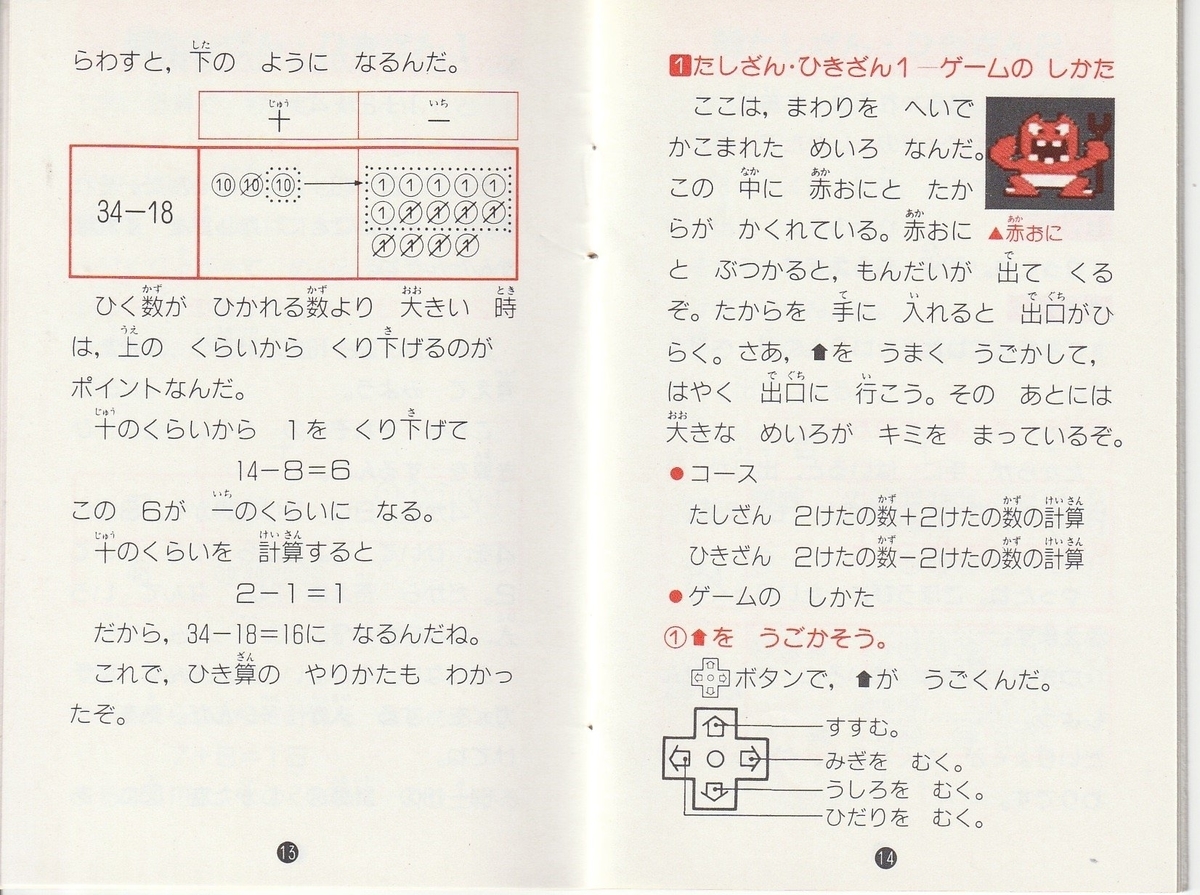 らわすと，下の　ように　なるんだ。
十　一
34－18
10 10 10
1 1 1 1 1
1 1 1 1 1
1 1 1 1
ひく数が　ひかれる数より　大きい　時
は，上の　くらいから　くり下げるのが
ポイントなんだ。
十のくらいから　1を　くり下げて
14－8＝6
この　6が　一のくらいに　なる。
十のくらいを　計算すると
2－1＝1
だから，34－18＝16に　なるんだね。
これで，ひき算の　やりかたも　わかっ
たぞ。
13
1 たしざん・ひきざん1―ゲームの　しかた
ここは，まわりを　へいで
かこまれた　めいろ　なんだ。
この　中に　赤おにと　たか
らが　かくれている。赤おに
▲赤おに
と　ぶつかると，もんだいが　出て　くる
ぞ。たからを　手に　入れると　出口がひ
らく。さあ，⬆を　うまく　うごかして，
はやく　出口に　行こう。その　あとには
大きな　めいろが　キミを　まっているぞ。
●コース
たしざん　2けたの数＋2けたの数の計算
ひきざん　2けたの数－2けたの数の計算
●ゲームの　しかた
①⬆を　うごかそう。
ボタンで，⬆が　うごくんだ。
すすむ。
みぎを　むく。
うしろを　むく。
ひだりを　むく。
14